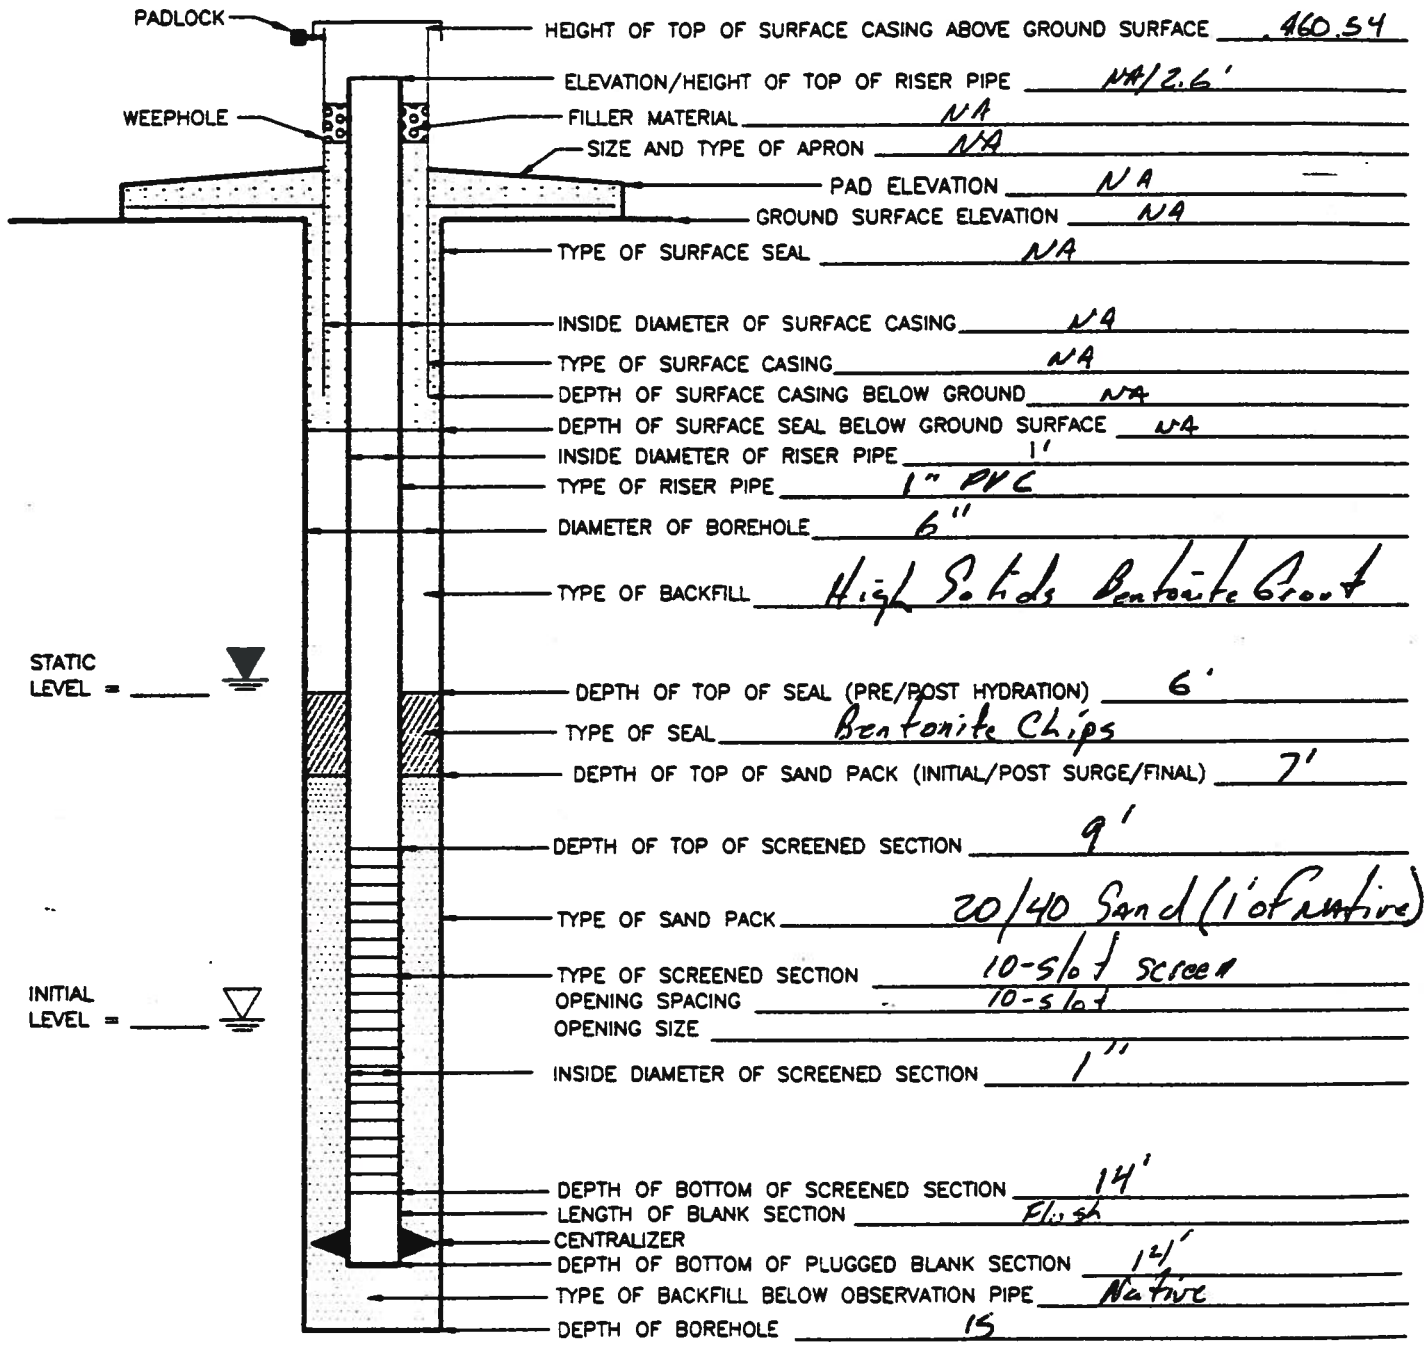 PADLOCK
HEIGHT OF TOP OF SURFACE CASING ABOVE GROUND SURFACE 460.54
ELEVATION/HEIGHT OF TOP OF RISER PIPE NA/2.6'
WEEPHOLE
FILLER MATERIAL NA
SIZE AND TYPE OF APRON NA
PAD ELEVATION NA
GROUND SURFACE ELEVATION NA
TYPE OF SURFACE SEAL NA
INSIDE DIAMETER OF SURFACE CASING NA
TYPE OF SURFACE CASING NA
DEPTH OF SURFACE CASING BELOW GROUND NA
DEPTH OF SURFACE SEAL BELOW GROUND SURFACE NA
INSIDE DIAMETER OF RISER PIPE 1'
TYPE OF RISER PIPE 1" PVC
DIAMETER OF BOREHOLE 6"
TYPE OF BACKFILL High Solids Bentonite Grout
STATIC
LEVEL =
DEPTH OF TOP OF SEAL (PRE/POST HYDRATION) 6'
TYPE OF SEAL Bentonite Chips
DEPTH OF TOP OF SAND PACK (INITIAL/POST SURGE/FINAL) 7'
DEPTH OF TOP OF SCREENED SECTION 9'
TYPE OF SAND PACK 20/40 Sand (1' of Native)
TYPE OF SCREENED SECTION 10-slot screen
INITIAL
LEVEL =
OPENING SPACING 10-slot
OPENING SIZE
INSIDE DIAMETER OF SCREENED SECTION 1"
DEPTH OF BOTTOM OF SCREENED SECTION 14'
LENGTH OF BLANK SECTION Flush
CENTRALIZER
DEPTH OF BOTTOM OF PLUGGED BLANK SECTION 14'
TYPE OF BACKFILL BELOW OBSERVATION PIPE Native
DEPTH OF BOREHOLE 15